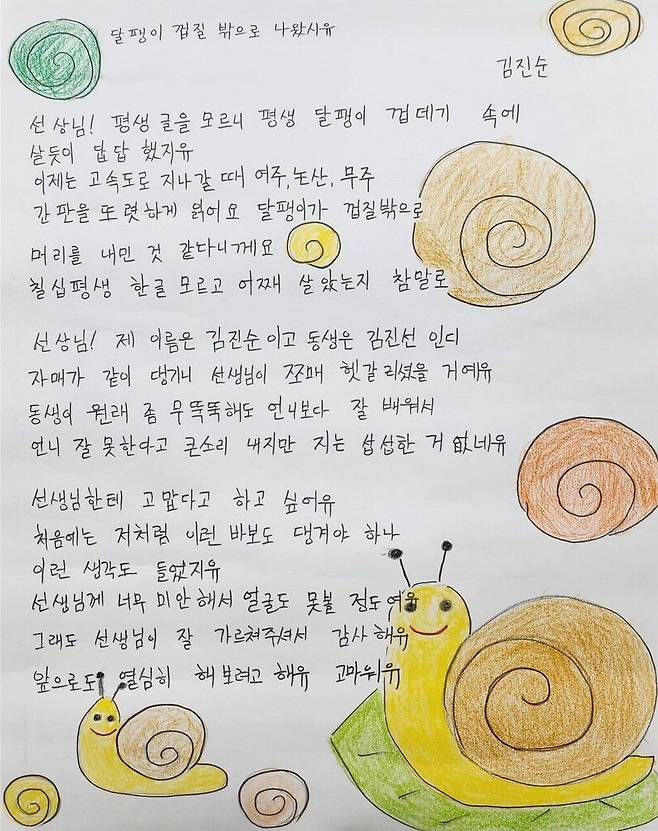 달팽이 껍질 밖으로 나왔시유
김진순
선상님! 평생 글을 모르니 평생 달팽이 껍데기 속에
살듯이 답답 했지유
이제는 고속도로 지나갈 때 여주, 논산, 무주
간판을 또렷하게 읽어요 달팽이가 껍질밖으로
머리를 내민 것 같다니께요
칠십평생 한글 모르고 어째 살았는지 참말로
선상님! 제 이름은 김진순이고 동생은 김진선 인디
자매가 같이 댕기니 선생님이 쪼매 헷갈리셨을 거예유
동생이 원래 좀 무뚝뚝해도 언니보다 잘 배워서
언니 잘 못한다고 큰소리 내지만 지는 섭섭한 거 없네유
선생님한테 고맙다고 하고 싶어유
처음에는 저처럼 이런 바보도 댕겨야 하나
이런 생각도 들었지유
선생님께 너무 미안해서 얼굴도 못볼 정도여유
그래도 선생님이 잘 가르쳐주셔서 감사해유
앞으로도 열심히 해보려고 해유 고마워유